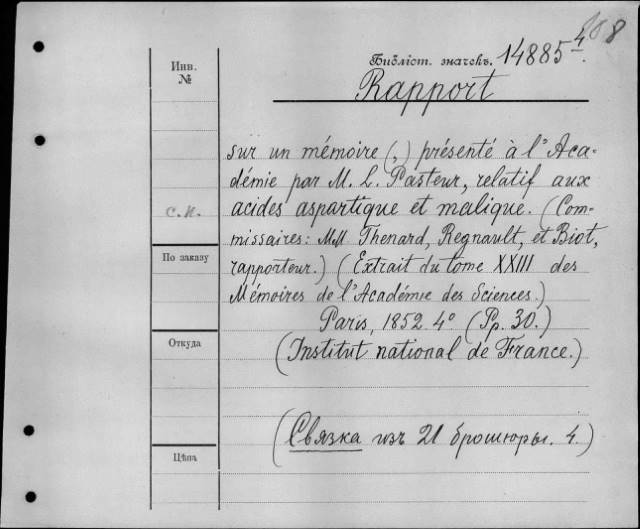 Библіот. значекъ. 14885 4.
Rapport
Инв.
№
sur un mémoire (,) présenté à l'Aca-
démie par M. L. Pasteur, relatif aux
acides aspartique et malique. (Com-
missaires: MM Thenard, Regnault, et Biot,
rapporteur.) (Extrait du tome XXIII des
Mémoires de l'Académie des Sciences.)
Paris, 1852. 4° (Pp. 30.)
(Institut national de France.)
(Связка изъ 21 брошюры. 4.)
с.к.
По заказу
Откуда
Цѣна